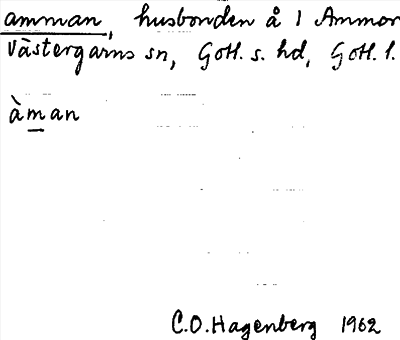 amman, husbonden å 1 Ammor
Västergarns sn, Gotl. s. hd, Gotl. l.
àman
C.O. Hagenberg 1962